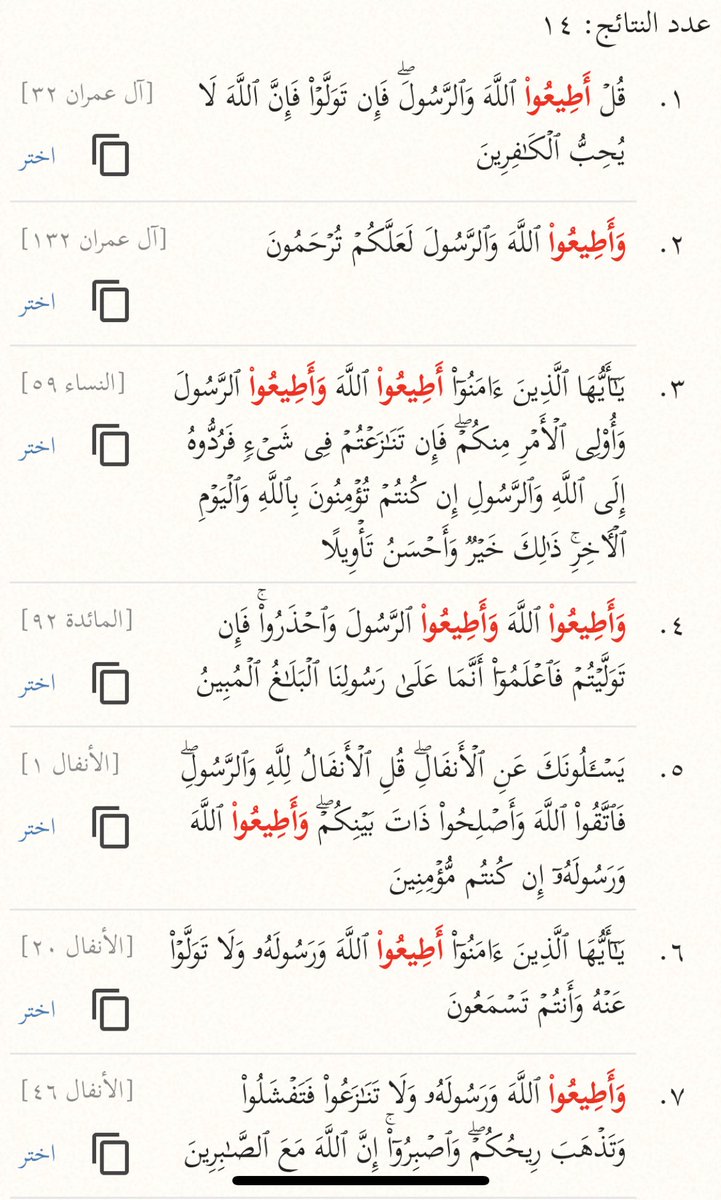 عدد النتائج: ١٤
١. قُلۡ أَطِيعُواْ ٱللَّهَ وَٱلرَّسُولَۖ فَإِن تَوَلَّوۡاْ فَإِنَّ ٱللَّهَ لَا [آل عمران ٣٢]
يُحِبُّ ٱلۡكَٰفِرِينَ اختر
٢. وَأَطِيعُواْ ٱللَّهَ وَٱلرَّسُولَ لَعَلَّكُمۡ تُرۡحَمُونَ [آل عمران ١٣٢]
اختر
٣. يَٰٓأَيُّهَا ٱلَّذِينَ ءَامَنُوٓاْ أَطِيعُواْ ٱللَّهَ وَأَطِيعُواْ ٱلرَّسُولَ [النساء ٥٩]
وَأُوْلِي ٱلۡأَمۡرِ مِنكُمۡۖ فَإِن تَنَٰزَعۡتُمۡ فِي شَيۡءٖ فَرُدُّوهُ اختر
إِلَى ٱللَّهِ وَٱلرَّسُولِ إِن كُنتُمۡ تُؤۡمِنُونَ بِٱللَّهِ وَٱلۡيَوۡمِ
ٱلۡأٓخِرِۚ ذَٰلِكَ خَيۡرٞ وَأَحۡسَنُ تَأۡوِيلًا
٤. وَأَطِيعُواْ ٱللَّهَ وَأَطِيعُواْ ٱلرَّسُولَ وَٱحۡذَرُواْۚ فَإِن [المائدة ٩٢]
تَوَلَّيۡتُمۡ فَٱعۡلَمُوٓاْ أَنَّمَا عَلَىٰ رَسُولِنَا ٱلۡبَلَٰغُ ٱلۡمُبِينُ اختر
٥. يَسۡـَٔلُونَكَ عَنِ ٱلۡأَنفَالِۖ قُلِ ٱلۡأَنفَالُ لِلَّهِ وَٱلرَّسُولِۖ [الأنفال ١]
فَٱتَّقُواْ ٱللَّهَ وَأَصۡلِحُواْ ذَاتَ بَيۡنِكُمۡۖ وَأَطِيعُواْ ٱللَّهَ اختر
وَرَسُولَهُۥٓ إِن كُنتُم مُّؤۡمِنِينَ
٦. يَٰٓأَيُّهَا ٱلَّذِينَ ءَامَنُوٓاْ أَطِيعُواْ ٱللَّهَ وَرَسُولَهُۥ وَلَا تَوَلَّوۡاْ [الأنفال ٢٠]
عَنۡهُ وَأَنتُمۡ تَسۡمَعُونَ اختر
٧. وَأَطِيعُواْ ٱللَّهَ وَرَسُولَهُۥ وَلَا تَنَٰزَعُواْ فَتَفۡشَلُواْ [الأنفال ٤٦]
وَتَذۡهَبَ رِيحُكُمۡۖ وَٱصۡبِرُوٓاْۚ إِنَّ ٱللَّهَ مَعَ ٱلصَّٰبِرِينَ اختر